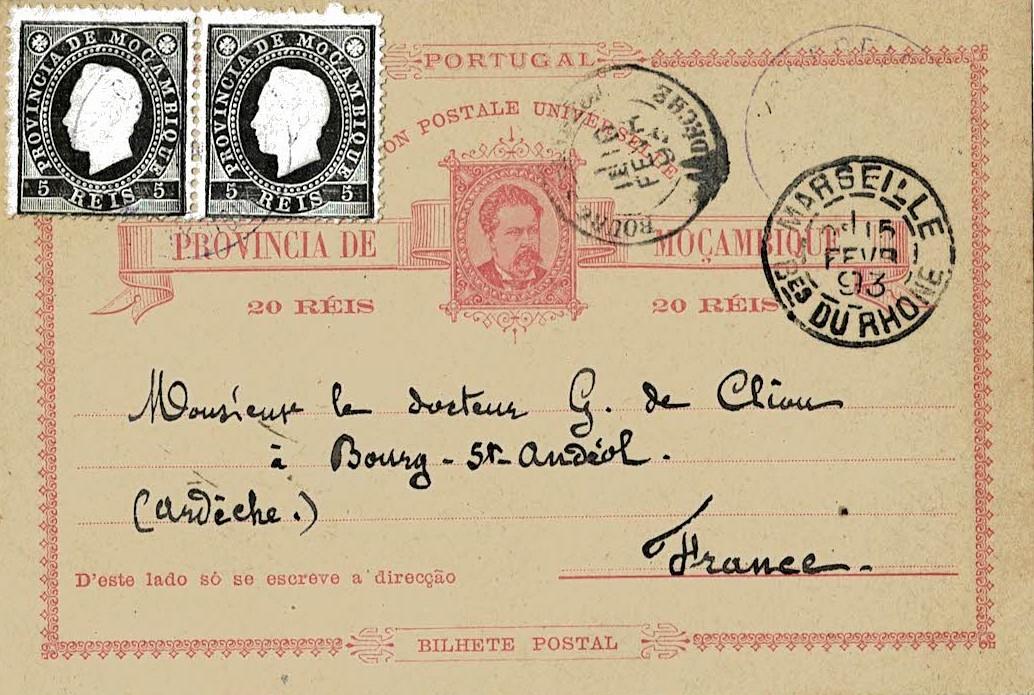 PROVINCIA DE MOÇAMBIQUE
5 REIS 5
PROVINCIA DE MOÇAMBIQUE
5 REIS 5
PORTUGAL
POSTALE UNIVERSELLE
PROVINCIA DE MOÇAMBIQUE
20 RÉIS 20 RÉIS
ARDECHE
FEVR
MARSEILLE
15
FEVR
93
DU RHONE
Monsieur le docteur G. de
à Bourg-St-Andéol.
(Ardèche.)
France.
D'este lado só se escreve a direcção
BILHETE POSTAL